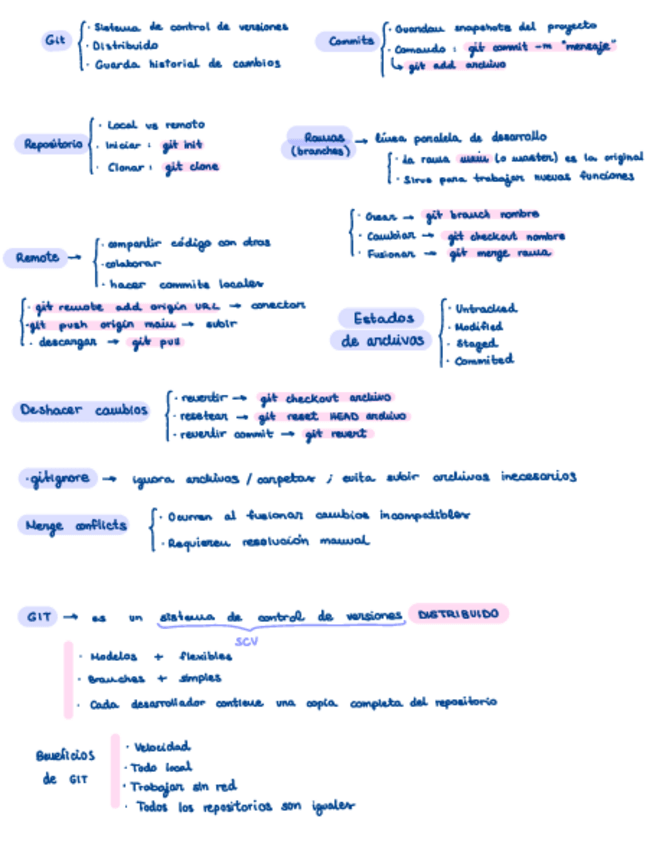 Git
· Sistema de control de versiones
· Distribuido
· Guarda historial de cambios
Commits
· Guardan snapshots del proyecto
· Comando : git commit -m "mensaje"
↳ git add archivo
Repositorio
· Local vs remoto
· Iniciar : git init
· Clonar : git clone
Ramas (branches) → línea paralela de desarrollo
· la rama main (o master) es la original
· Sirve para trabajar nuevas funciones
· Crear → git branch nombre
· Cambiar → git checkout nombre
· Fusionar → git merge rama
Remote →
· compartir código con otros
· colaborar
· hacer commits locales
· git remote add origin URL → conectar
· git push origin main → subir
· descargar → git pull
Estados
de archivos
· Untracked
· Modified
· Staged
· Commited
Deshacer cambios
· revertir → git checkout archivo
· resetear → git reset HEAD archivo
· revertir commit → git revert
.gitignore → ignora archivos / carpetas ; evita subir archivos inecesarios
Merge conflicts
· Ocurren al fusionar cambios incompatibles
· Requieren resolución manual
GIT → es un sistema de control de versiones DISTRIBUIDO
SCV
· Modelos + flexibles
· Branches + simples
· Cada desarrollador contiene una copia completa del repositorio
Beneficios
de GIT
· Velocidad
· Todo local
· Trabajar sin red
· Todos los repositorios son iguales